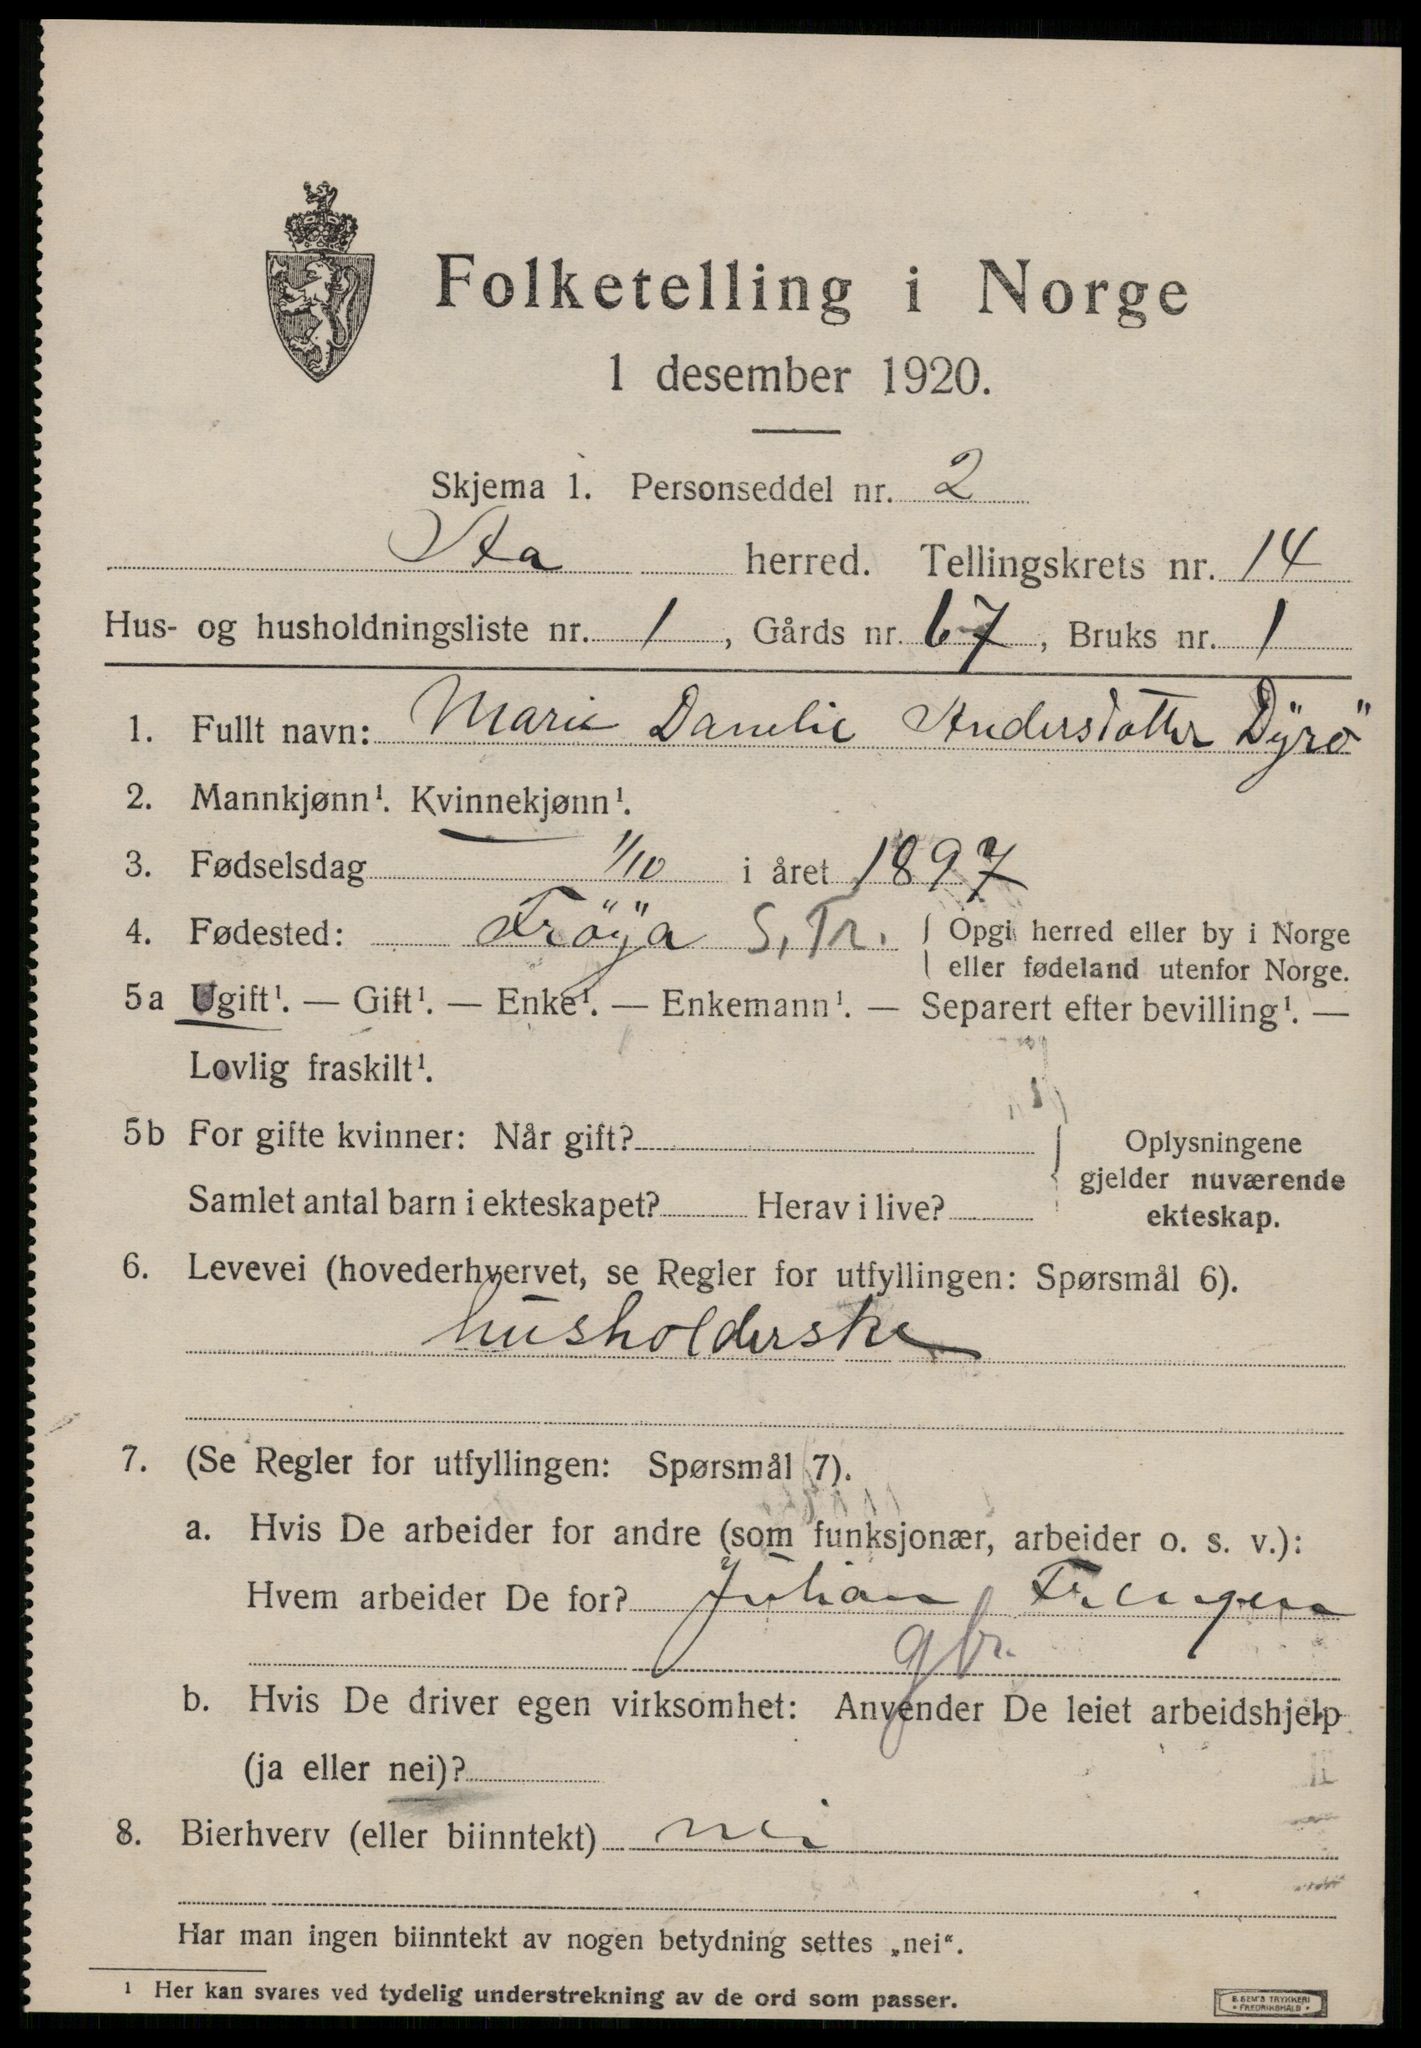 Folketelling i Norge
1 desember 1920.
Skjema 1. Personseddel nr. 2
Sta herred. Tellingskrets nr. 14
Hus- og husholdningsliste nr. 1, Gårds nr. 67, Bruks nr. 1
1. Fullt navn: Marie Danelie Andersdatter Dÿrö
2. Mannkjønn¹. Kvinnekjønn¹.
3. Fødselsdag 1/10 i året 1897
4. Fødested: Fröÿa S. Tr. { Opgi herred eller by i Norge
eller fødeland utenfor Norge.
5a Ugift¹. — Gift¹. — Enke¹. — Enkemann¹. — Separert efter bevilling¹. —
Lovlig fraskilt¹.
5b For gifte kvinner: Når gift? Oplysningene
gjelder nuværende
Samlet antal barn i ekteskapet? Herav i live? ekteskap.
6. Levevei (hovederhvervet, se Regler for utfyllingen: Spørsmål 6).
husholderske
7. (Se Regler for utfyllingen: Spørsmål 7).
a. Hvis De arbeider for andre (som funksjonær, arbeider o. s. v.):
Hvem arbeider De for? Julian
gbr.
b. Hvis De driver egen virksomhet: Anvender De leiet arbeidshjelp
(ja eller nei)?
8. Bierhverv (eller biinntekt) nei
Har man ingen biinntekt av nogen betydning settes „nei“.
¹ Her kan svares ved tydelig understrekning av de ord som passer.
E. SEM'S TRYKKERI
• FREDRIKSHALD •